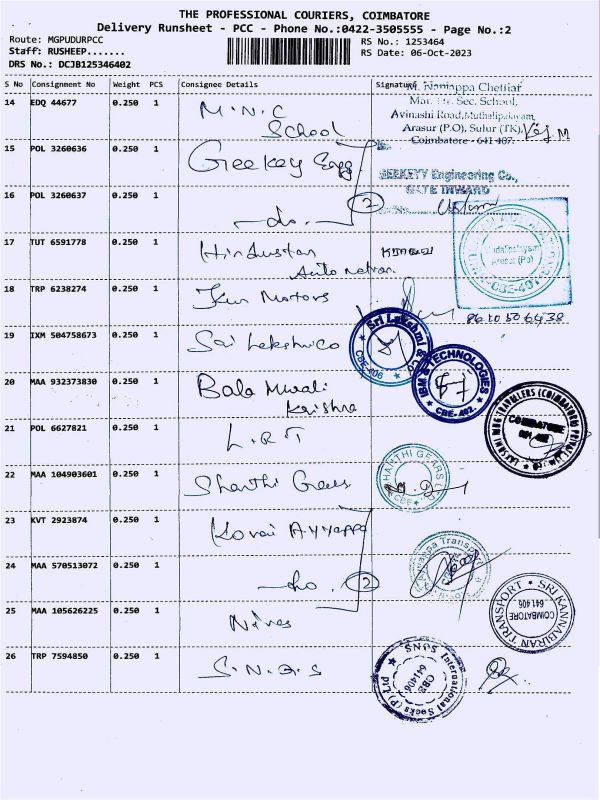 THE PROFESSIONAL COURIERS, COIMBATORE
Delivery Runsheet - PCC - Phone No.:0422-3505555 - Page No.:2
Route: MGPUDURPCC
RS No.: 1253464
Staff: RUSHEEP.......
RS Date: 06-Oct-2023
DRS No.: DCJB125346402
S No Consignment No Weight PCS Consignee Details Signature
M. Naniappa Chettiar
Man. Hr. Sec. School,
Avinashi Road, Muthalipalayam,
Arasur (P.O), Sulur (TK),
Coimbatore - 641 407.
14 EDQ 44677 0.250 1 M.N.C School
15 POL 3260636 0.250 1 Geekey Engg
GEEKEYY Engineering Co.,
GATE INWARD
16 POL 3260637 0.250 1 -do- 2
17 TUT 6591778 0.250 1 Hindustan Automotion
Arasur (Po)
18 TRP 6238274 0.250 1 Motors
86 10 50 6438
19 IXM 504758673 0.250 1 Sai Lekshmi co
Sri Lekshmi & Co
CBE-406
20 MAA 932373830 0.250 1 Bala Murali Krishna
IBM TECHNOLOGIES
CBE-402.
21 POL 6627821 0.250 1 L.R.T
COIMBATORE
22 MAA 104903601 0.250 1 Shanthi Gears
SHANTHI GEARS LTD
CBE
23 KVT 2923874 0.250 1 Kovai Ayyappa
Ayyappa Transport
24 MAA 570513072 0.250 1 -do. 2
25 MAA 105626225 0.250 1
SRI KANNABIRAN TRANSPORT
COIMBATORE
641 406
26 TRP 7594850 0.250 1 S.N.Q.S
SNPS International Socks (P) Ltd
CBE
641406